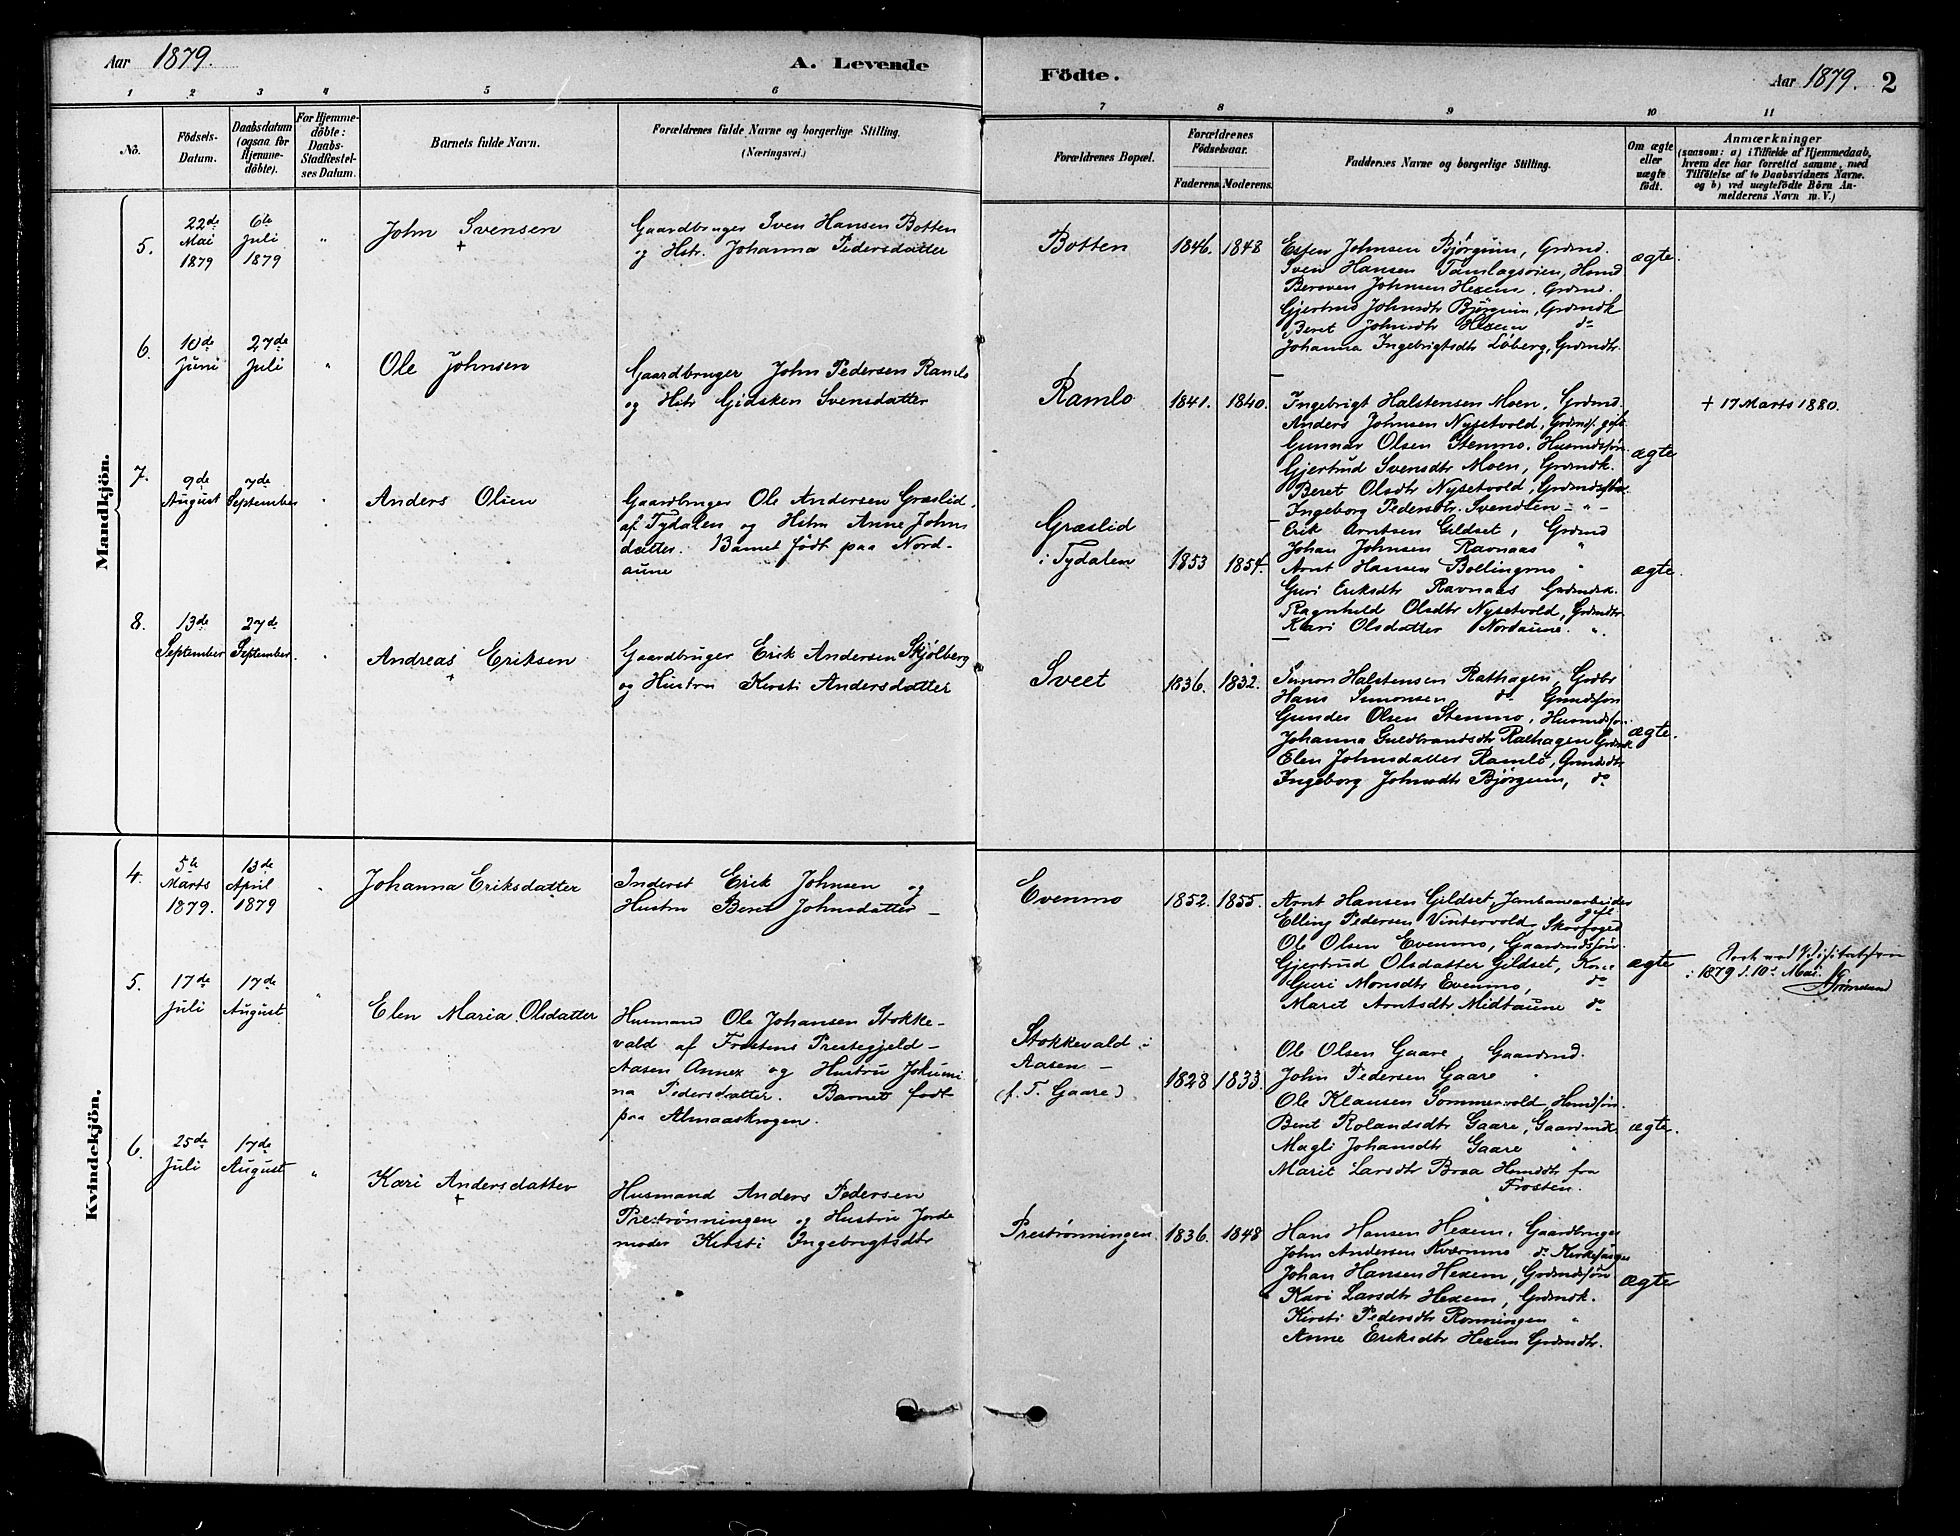 Aar 1879.
A. Levende
Födte.
Aar 1879. 2
1 2 3 4 5 6 7 8 9 10 11
No.
Födsels-
Datum.
Daabsdatum
(ogsaa for
Hjemme-
döbte).
For Hjemme-
döbte:
Daabs-
Stadfæstel-
ses Datum.
Barnets fulde Navn.
Forældrenes fulde Navne og borgerlige Stilling.
(Næringsvei.)
Forældrenes Bopæl.
Forældrenes
Födselsaar.
Faderens. Moderens.
Faddernes Navne og borgerlige Stilling.
Om ægte
eller
uægte
födt.
Anmærkninger
(saasom: a) i Tilfælde af Hjemmedaab,
hvem der har forrettet samme, med
Tilföielse af to Daabsvidners Navne.
og b) ved uægtefödte Börn An-
melderens Navn m. V.)
Mandkjön.
5.
22de
Mai
1879
6te
Juli
1879
"
John Svensen
+
Gaardbruger Sven Hansen Botten
og Hstr. Johanna Pedersdatter
Botten
1846. 1848
Esten Johnsen Bjørgum, Grdmd.
Sven Hansen Tamlagsøien, Hsmd
Berøven Johnsen Hexem, Grdmd.
Gjertrud Johnsdtr Bjørgum, Grdmdk
Beret Johnsdtr Hexem do
Johanna Ingebrigtsdtr Løberg, Grdmdtr.
ægte.
6.
10de
Juni
27de
Juli
"
Ole Johnsen
Gaardbruger John Pedersen Ramlo
og Hstr Gidsken Svensdatter
Ramlo
1841. 1840.
Ingebrigt Halstensen Moen, Grdmd.
Anders Johnsen Nysetvold, Grdmdf. gift
Gunnar Olsen Stenmo, Husmdsøn.
Gjertrud Svensdtr Moen, Grdmdk.
Beret Olsdtr Nysetvold,
Ingeborg Pedersdtr. Svendten - " -
ægte
+ 17 Marts 1880.
7.
9de
August
7de
September
"
Anders Olsen
Gaardbruger Ole Andersen Græslid
af Tydalen og Hstru Anne Johns
datter. Barnet født paa Nord-
aune
Græslid
i Tydalen
1853 1854.
Erik Arntsen Gildset, Grdmd
Johan Johnsen Ravnaas "
Arnt Hansen Bollingmo "
Guri Eriksdtr Ravnaas Grdmdk.
Ragnhild Olsdtr Nysetvold, Grdmdtr
Kari Olsdatter Nordaune. ".
ægte.
8.
13de
September
27de
September.
"
Andreas Eriksen
+
Gaardbruger Erik Andersen Skjølberg
og Hustru Kirsti Andersdatter
Sveet
1836. 1832.
Simon Halstensen Rathagen, Grdbr
Hans Simonsen do Grmdsøn
Gunder Olsen Stenmo, Husmdsøn.
Johanna Guldbrandsdtr Rathagen Grdmdk
Elen Johnsdatter Ramlo, Grmdsdtr
Ingeborg Johnsdtr Bjørgum, do
ægte.
Kvindekjön.
4.
5te
Marts
1879.
13de
April
1879
"
Johanna Eriksdatter
Inderst Erik Johnsen og
Hustru Beret Johnsdatter -
Evenmo
1852. 1855.
Arnt Hansen Gildset, Jernbanearbeider
gift
Elling Pedersen Vintervold, Skovfoged
Ole Olsen Evenmo, Gaardmdssøn.
Gjertrud Olsdatter Gildset, Kone
Guri Monsdtr Evenmo, do
Maret Arntsdtr. Midtaune do
ægte
1879 d. 10. Mai.
5.
17de
Juli
17de
August
"
Elen Maria Olsdatter
Husmand Ole Johansen Stokke-
vald af Frostens Prestegjeld -
Aasen Annex og Hustru Johumi
na Pedersdatter. Barnet født
paa Almaaskrogen.
Stokkevald i
Aasen -
(f. T. Gaare)
1828 1833.
Ole Olsen Gaare, Gaardmd.
John Pedersen Gaare "
Ole Klausen Sommervold Hsmdsøn.
Beret Rolandsdtr Gaare, Gaardmdk.
Magli Johansdtr Gaare "
Marit Larsdtr Braa Hsmdtr fra
Frosten.
ægte.
6.
25de
Juli
17de
August
"
Kari Andersdatter
+
Husmand Anders Pedersen
Prestrønningen og Hustru Jorde
moder Kirsti Ingebrigtsdtr
Prestrønningen
1836. 1848
Hans Hansen Hexem, Gaardbruger
John Andersen Kværnmo do Kirkesanger
Johan Hansen Hexem, Grdmdsøn
Kari Larsdtr Hexem, Grdmdk.
Kirsti Pedersdtr Rønningen "
Anne Eriksdtr Hexem Grdmdtr.
ægte